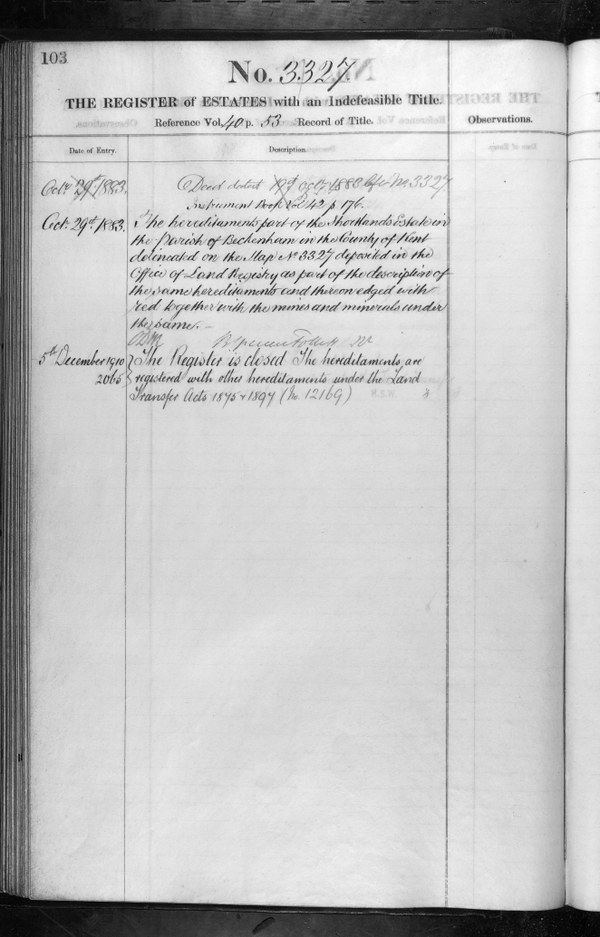 103
No. 3327
THE REGISTER of ESTATES with an Indefeasible Title.
Reference Vol. 40 p. 53 Record of Title.
Observations.
Date of Entry.
Description.
Octr 29th 1883.
Deed dated 19th Octr 1883 No 3327
Instrument Book Vol 42 p 176.
Oct. 29th 1883.
The hereditaments part of the Shortlands Estate in
the Parish of Beckenham in the County of Kent
delineated on the Map No 3327 deposited in the
Office of Land Registry as part of the description of
the same hereditaments and thereon edged with
red together with the mines and minerals under
the same. _
5th December 1910
2065
The Register is closed The hereditaments are
registered with other hereditaments under the Land
Transfer Acts 1875 & 1897 (No. 12169)